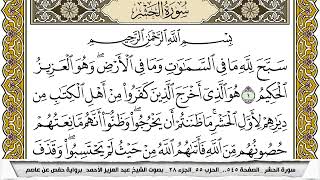 سُورَةُ الحَشْرِ
بِسْمِ اللَّهِ الرَّحْمَٰنِ الرَّحِيمِ
سَبَّحَ لِلَّهِ مَا فِي السَّمَاوَاتِ وَمَا فِي الْأَرْضِ ۖ وَهُوَ الْعَزِيزُ
الْحَكِيمُ ١ هُوَ الَّذِي أَخْرَجَ الَّذِينَ كَفَرُوا مِنْ أَهْلِ الْكِتَابِ مِن
دِيَارِهِمْ لِأَوَّلِ الْحَشْرِ ۚ مَا ظَنَنتُمْ أَن يَخْرُجُوا ۖ وَظَنُّوا أَنَّهُم مَّانِعَتُهُمْ
حُصُونُهُم مِّنَ اللَّهِ فَأَتَاهُمُ اللَّهُ مِنْ حَيْثُ لَمْ يَحْتَسِبُوا ۖ وَقَذَفَ
سورة الحشر .. الصفحة ٥٤٥.. الحزب ٥٥ .. الجزء ٢٨ .. بصوت الشيخ عبد العزيز الاحمد.. برواية حفص عن عاصم